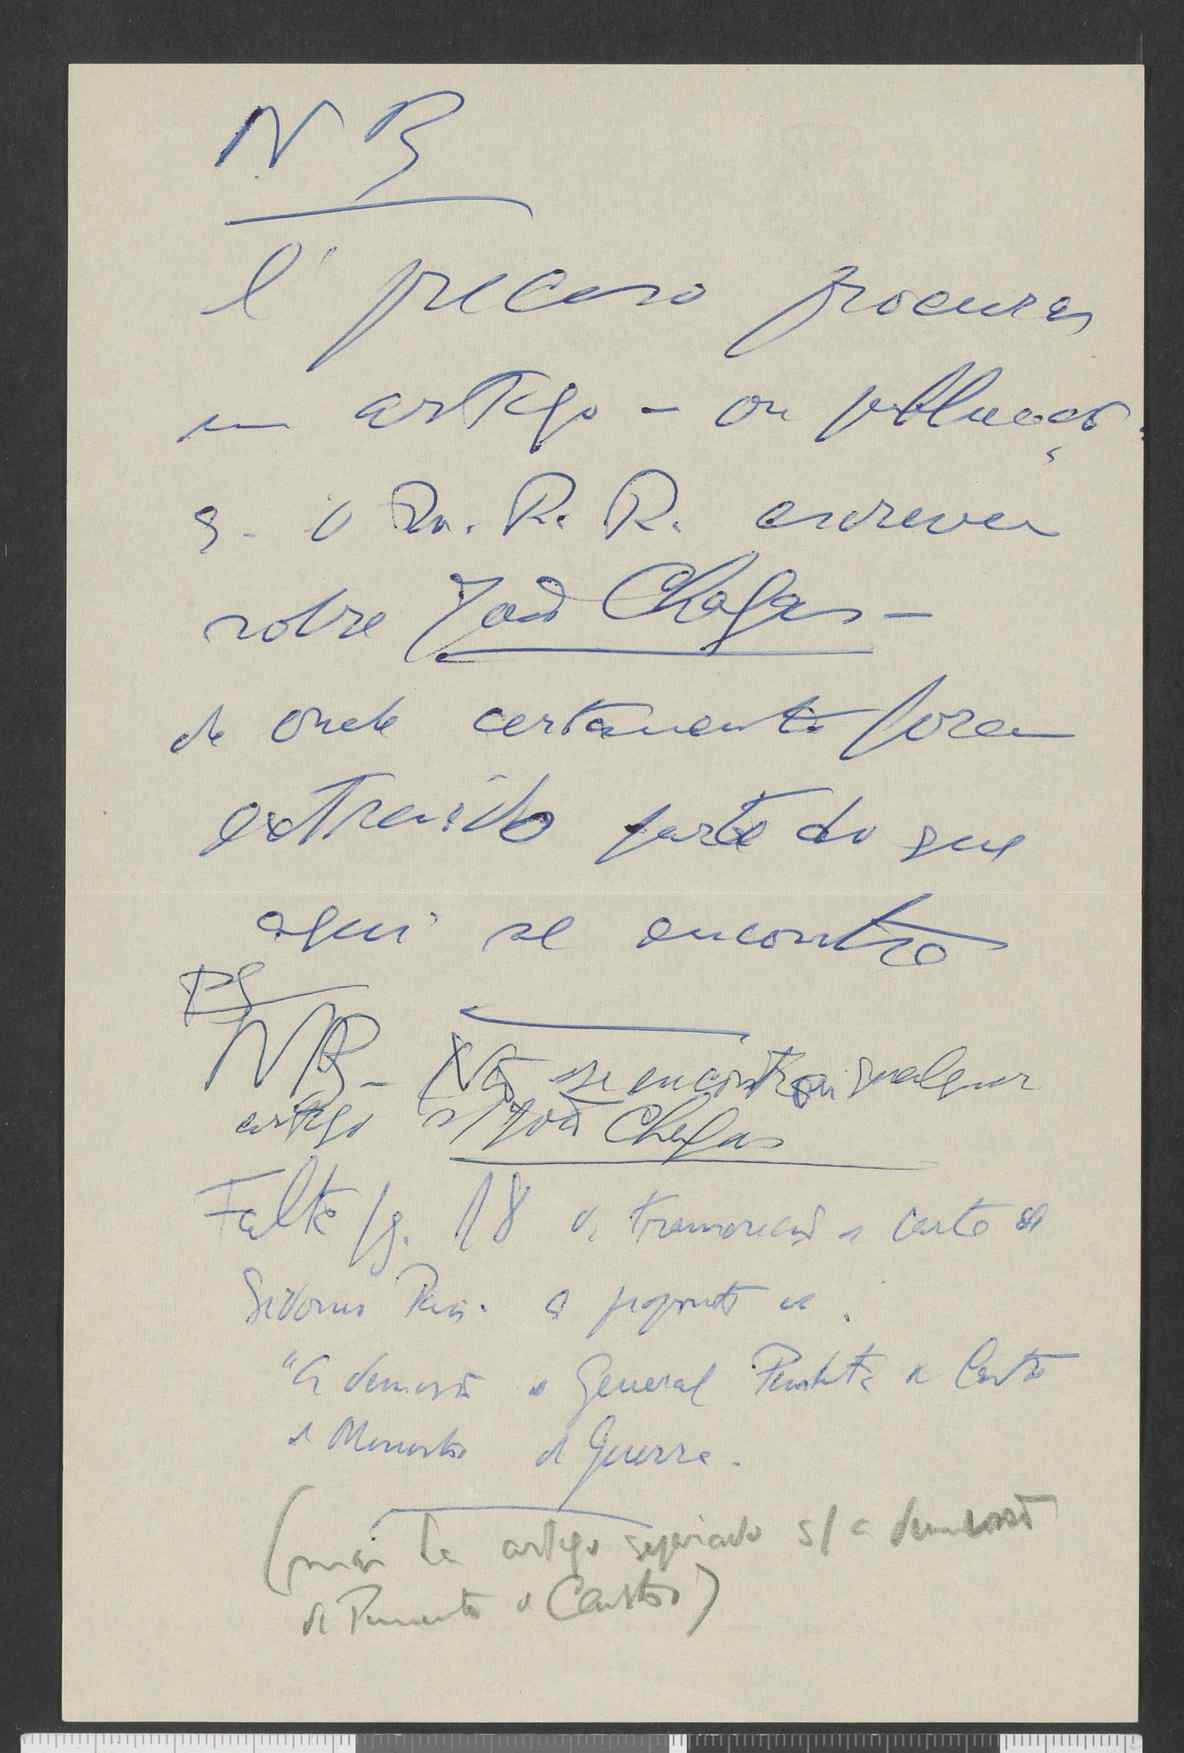 N B
É preciso procurar
um artigo - ou publicação
q. o Dr. R. R. escreveu
sobre João Chagas -
de onde certamente foram
extraido parte do que
aqui se encontra
PS
NB - Não se encontrou qualquer
artigo s/ João Chagas
Falta pg. 18 de transcrição a carta de
Sidonio Pais. a proposito da.
"A demissão do General Pimenta de Castro
de Ministro da Guerra.
(mas ha artigo separado s/ a demissão
de Pimenta de Castro)